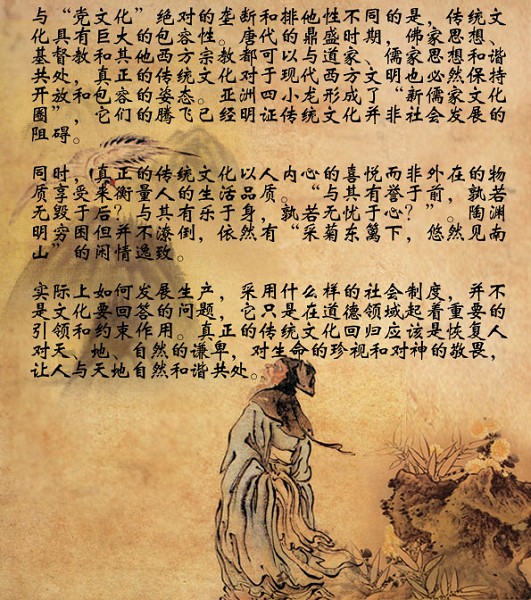 与“党文化”绝对的垄断和排他性不同的是，传统文
化具有巨大的包容性。唐代的鼎盛时期，佛家思想、
基督教和其他西方宗教都可以与道家、儒家思想和谐
共处，真正的传统文化对于现代西方文明也必然保持
开放和包容的姿态。亚洲四小龙形成了“新儒家文化
圈”，它们的腾飞已经明证传统文化并非社会发展的
阻碍。
同时，真正的传统文化以人内心的喜悦而非外在的物
质享受来衡量人的生活品质。“与其有誉于前，孰若
无毁于后？与其有乐于身，孰若无忧于心？”。陶渊
明穷困但并不潦倒，依然有“采菊东篱下，悠然见南
山”的闲情逸致。
实际上如何发展生产，采用什么样的社会制度，并不
是文化要回答的问题，它只是在道德领域起着重要的
引领和约束作用。真正的传统文化回归应该是恢复人
对天、地、自然的谦卑，对生命的珍视和对神的敬畏，
让人与天地自然和谐共处。